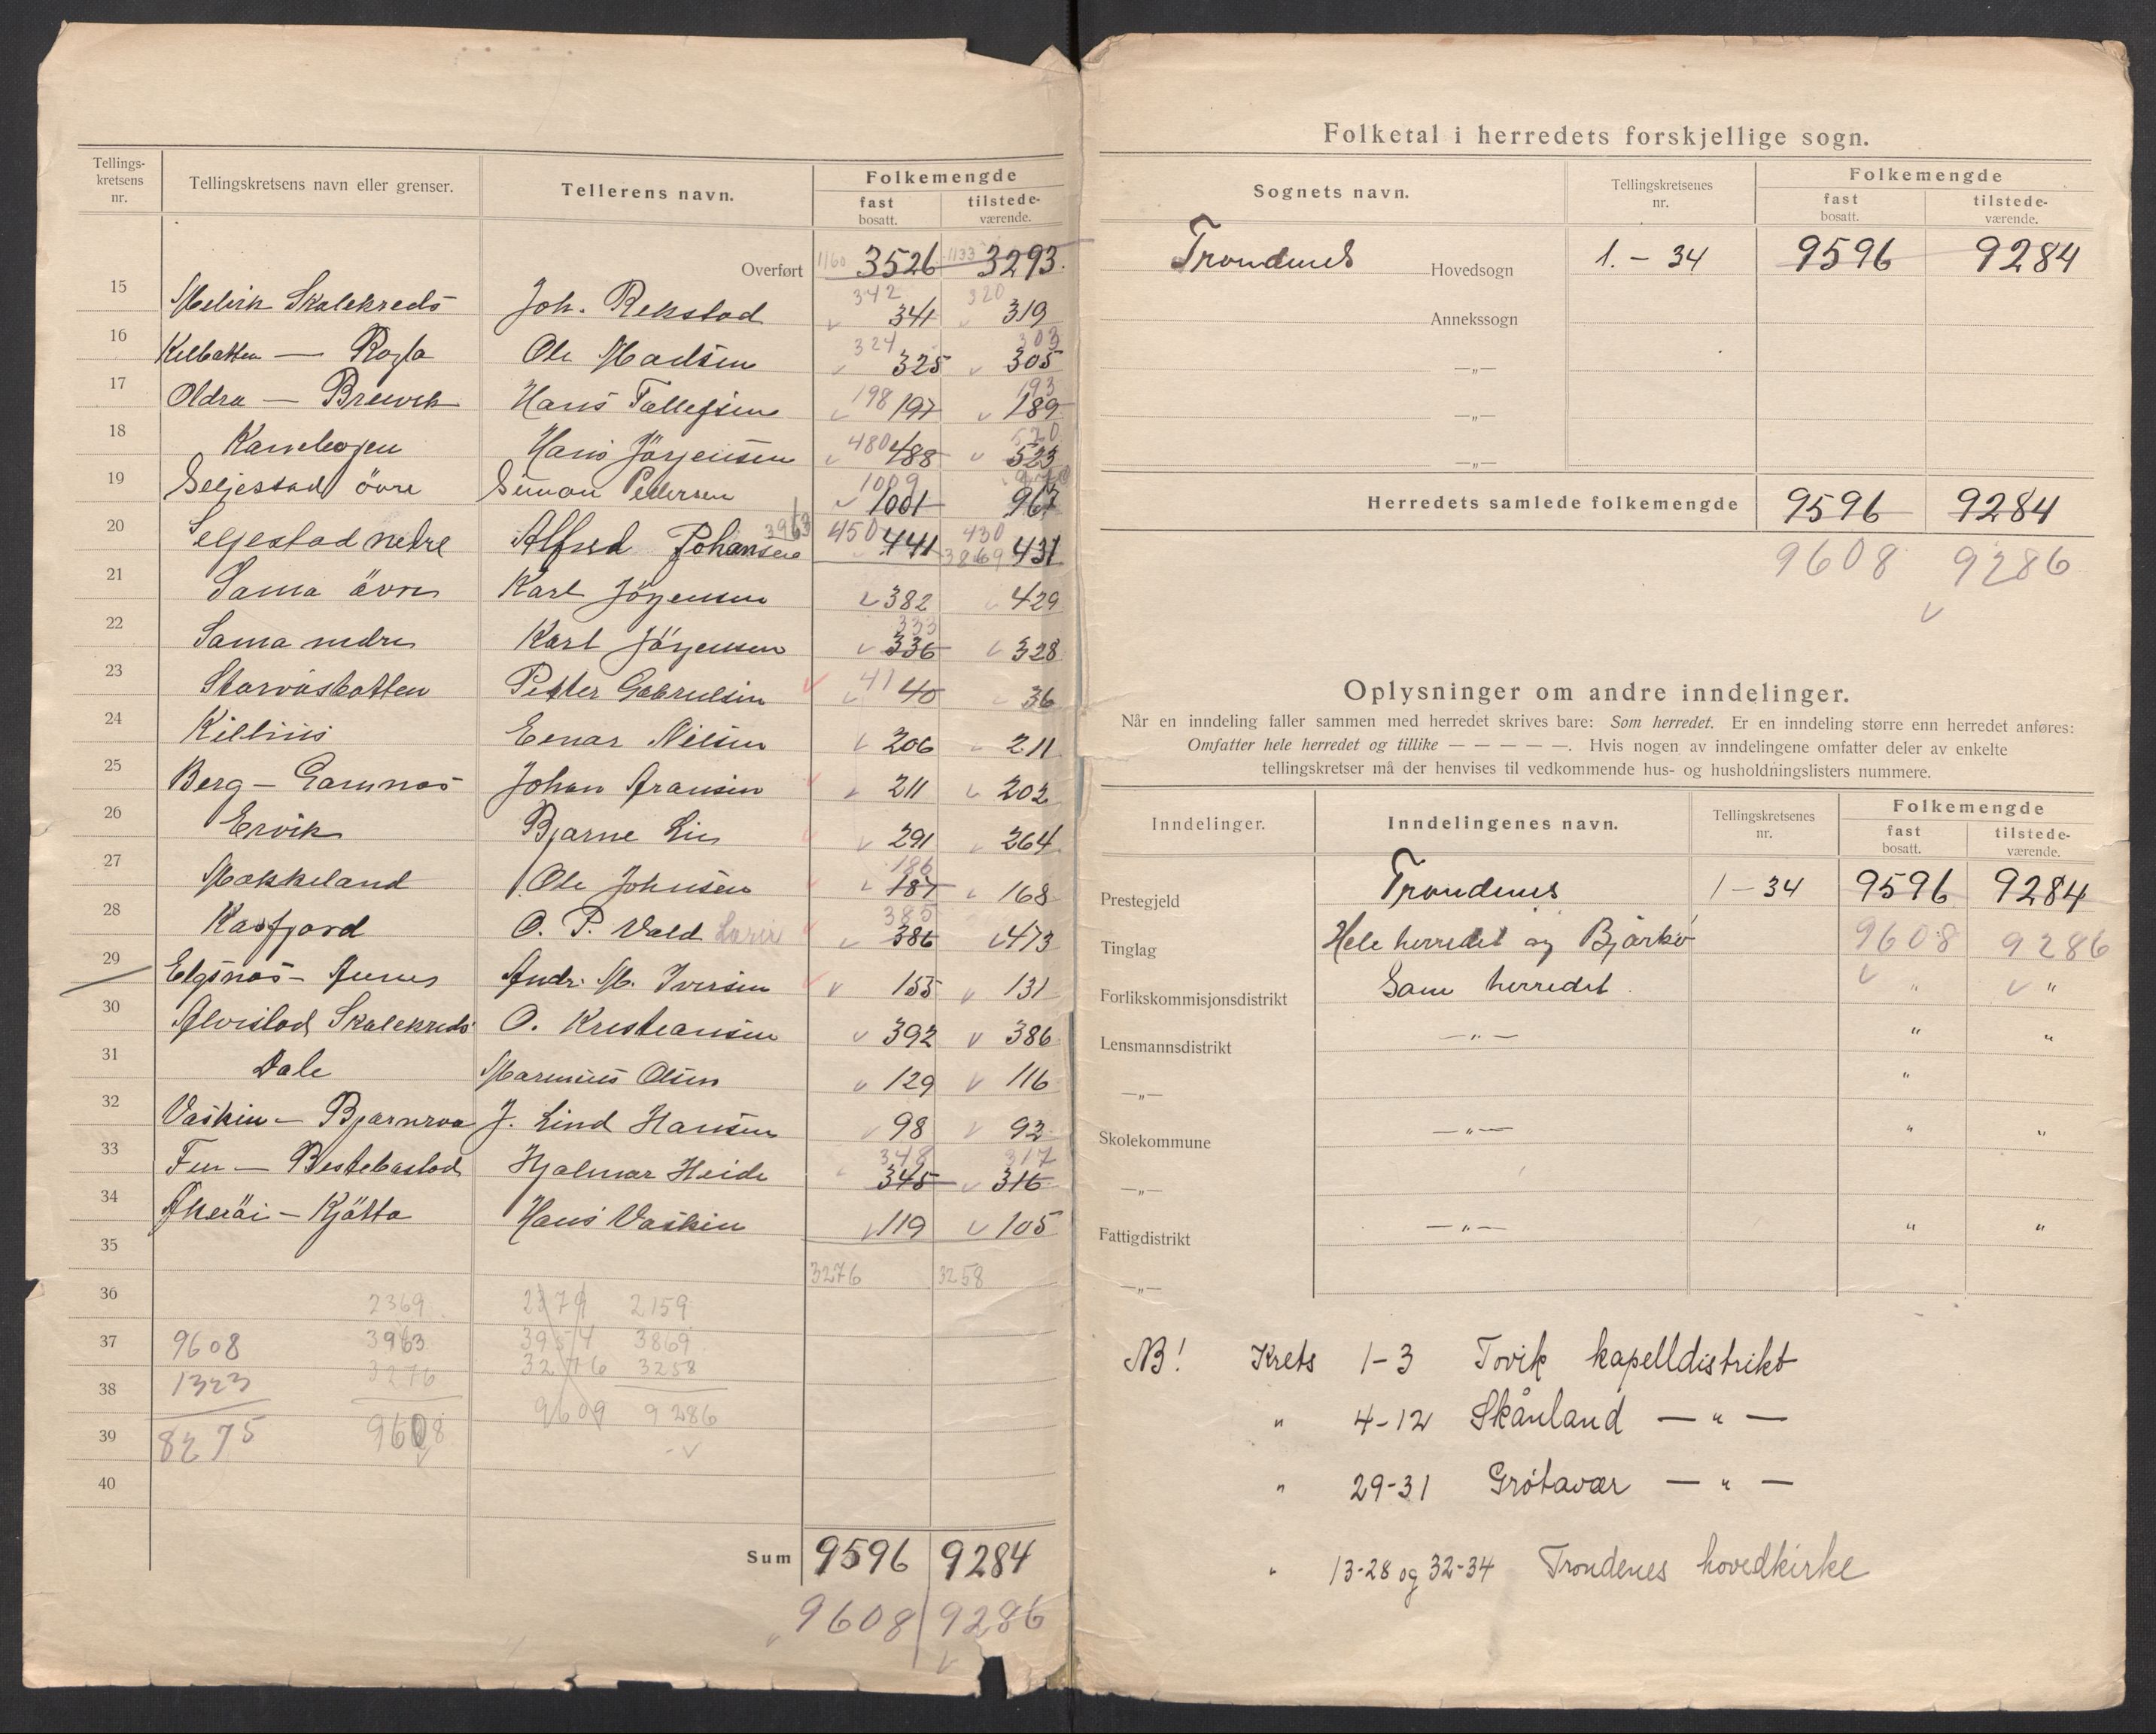 Tellings-kretsens nr. Tellingskretsens navn eller grenser. Tellerens navn. Folkemengde
fast bosatt. tilstede-værende.
Overført 1160 3526 1133 3293
15 Melvik Skolekreds Joh. Rekstad 342 341 320 319
16 Kilbotten — Rogla Ole Madsen 324 325 303 305
17 Oldra — Breivik Hans Tollefsen 198 197 193 189
18 Kanebogen Hans Jörgensen 480 488 520 523
19 Seljestad övre Simon Pedersen 1009 1001 967
20 Seljestad nedre Alfred Johansen 3963 450 441 430 3869 431
21 Sama övre Karl Jörgensen 382 429
22 Sama nedre Karl Jörgensen 333 336 328
23 Storvasbotten Petter Gabrielsen 41 40 36
24 Killiis Einar Nilsen 206 211
25 Berg — Gamnes Johan Fransen 211 202
26 Ervik Bjarne Lie 291 264
27 Mokkeland Ole Johnsen 186 187 168
28 Kasfjord O. P. Vold 385 386 473
29 Elgsnes — Aunes Andr. M. Iversen 155 131
30 Alvestad Skolekreds O. Kristiansen 392 386
31 Dale Marinius Olsen 129 116
32 Vaskin — Bjarnroa J. Lind Hansen 98 92
33 Fen — Bestebostad Hjalmar Heide 348 345 317 316
34 Akeröi — Kjötta Hans Vaskin 119 105
35
3276 3258
36 2369 2379 2159
37 9608 3963 3954 3869
38 1323 3276 3276 3258
39 8275 9608 9609 9286
40
Sum 9596 9284
9608 9286
Folketal i herredets forskjellige sogn.
Sognets navn. Tellingskretsenes nr. Folkemengde
fast bosatt. tilstede-værende.
Trondenes Hovedsogn 1.–34 9596 9284
Annekssogn
—„—
—„—
—„—
Herredets samlede folkemengde 9596 9284
9608 9286
Oplysninger om andre inndelinger.
Når en inndeling faller sammen med herredet skrives bare: Som herredet. Er en inndeling større enn herredet anføres:
Omfatter hele herredet og tillike — — — — —. Hvis nogen av inndelingene omfatter deler av enkelte
tellingskretser må der henvises til vedkommende hus- og husholdningslisters nummere.
Inndelinger. Inndelingenes navn. Tellingskretsenes nr. Folkemengde
fast bosatt. tilstede-værende.
Prestegjeld Trondenes 1–34 9596 9284
Tinglag Hele herredet og Bjarkö 9608 9286
Forlikskommisjonsdistrikt Som herredet " "
Lensmannsdistrikt —"— " "
—„— "
Skolekommune —"— " "
—„—
Fattigdistrikt —"— " "
—„—
NB! Krets 1–3 Tovik kapelldistrikt
" 4–12 Skånland — " —
" 29–31 Grötavær — " —
" 13–28 og 32–34 Trondenes hovedkirke